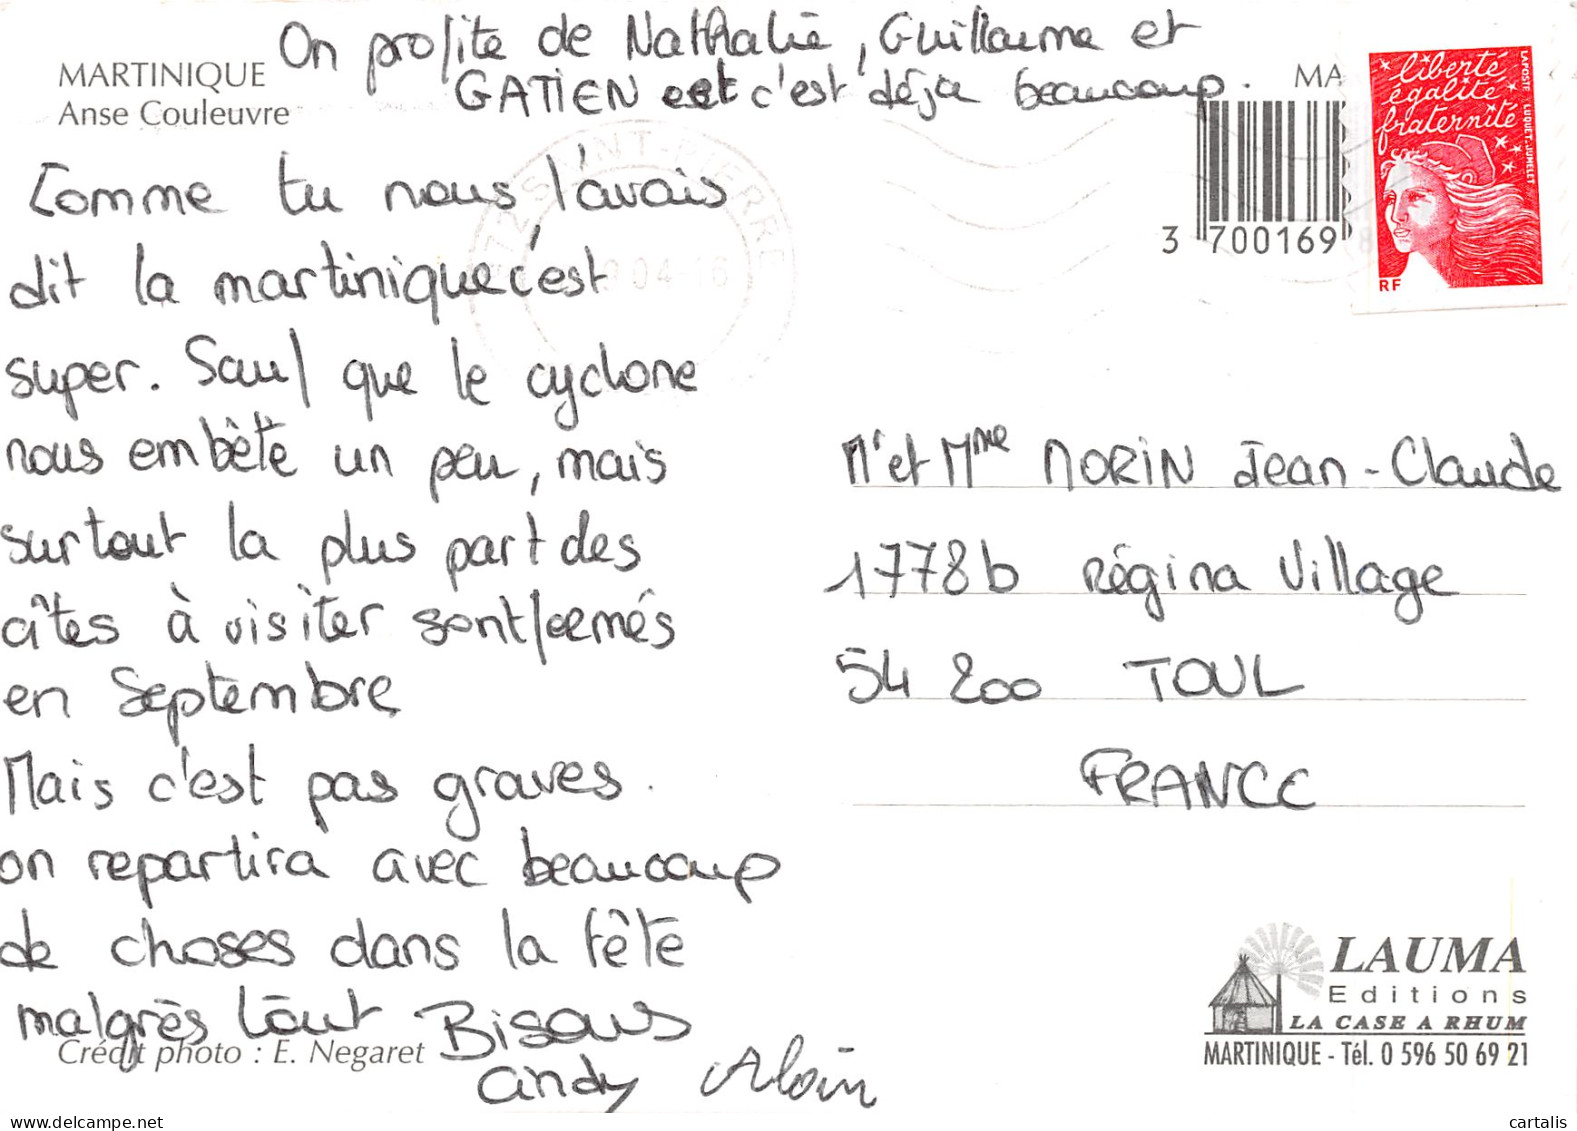 On profite de Nathalie, Guillaume et
GATIEN et c'est déja beaucoup.
MARTINIQUE
Anse Couleuvre
MA
liberté
égalité
fraternité
LA POSTE LUQUET-JUMELET
RF
3 700169
SAINT-PIERRE
Comme tu nous l'avais
dit la martinique c'est
super. Sauf que le cyclone
nous embète un peu, mais
surtout la plus part des
cîtes à visiter sont fermés
en Septembre
Mais c'est pas graves.
on repartira avec beaucoup
de choses dans la tête
malgrès tout Bisous
Cindy Aloin
Crédit photo : E. Negaret
Mr et Mme MORIN Jean-Claude
1778b Régina Village
54 200 TOUL
FRANCE
LAUMA
Editions
LA CASE A RHUM
MARTINIQUE - Tél. 0 596 50 69 21
cartalis